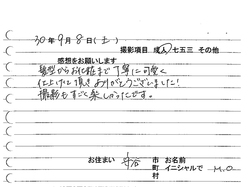 30年9月8日(土)
撮影項目 成人 七五三 その他
感想をお願いします
髪型からお化粧まで丁寧に可愛く
仕上げて頂きありがとうございました!
撮影もすごく楽しかったです。
お住まい 守谷 市 町 村 お名前 イニシャルで M.O